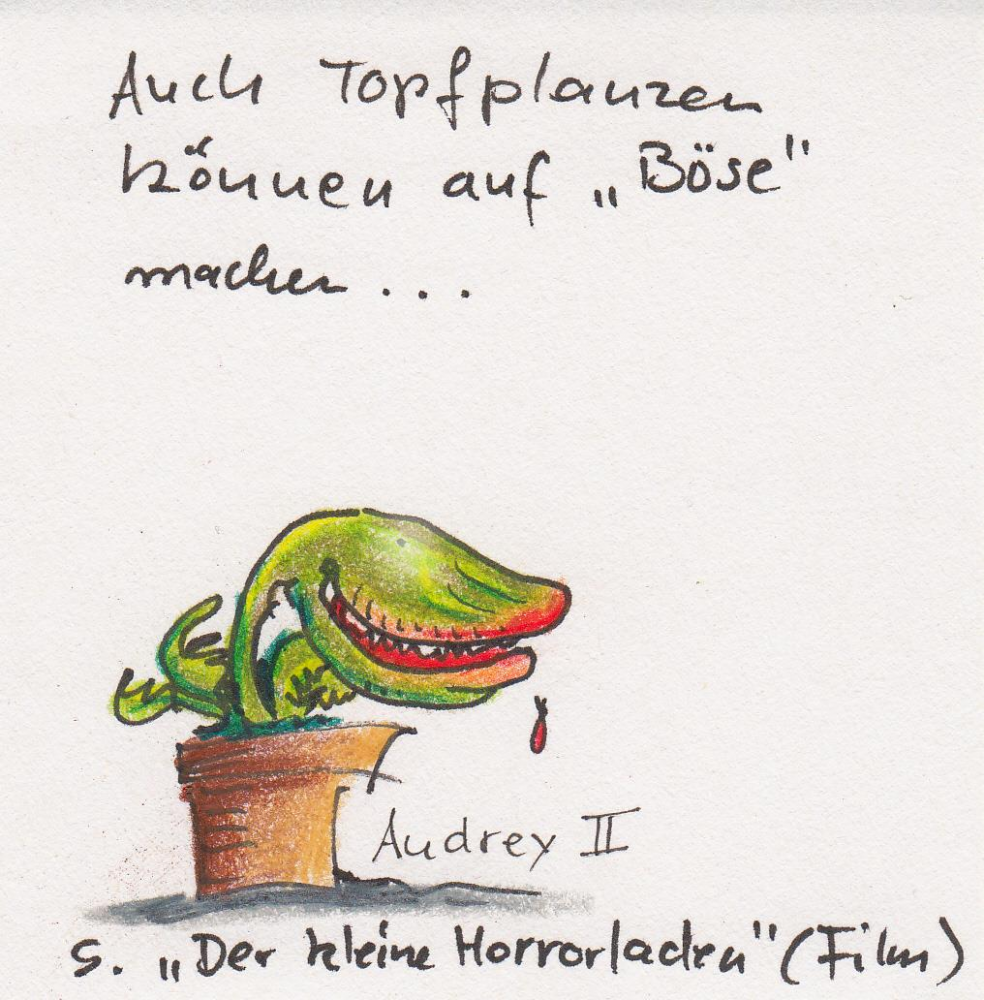 Auch Topfplanzen
können auf „Böse"
machen...
Audrey II
s. „Der kleine Horrorladen" (Film)